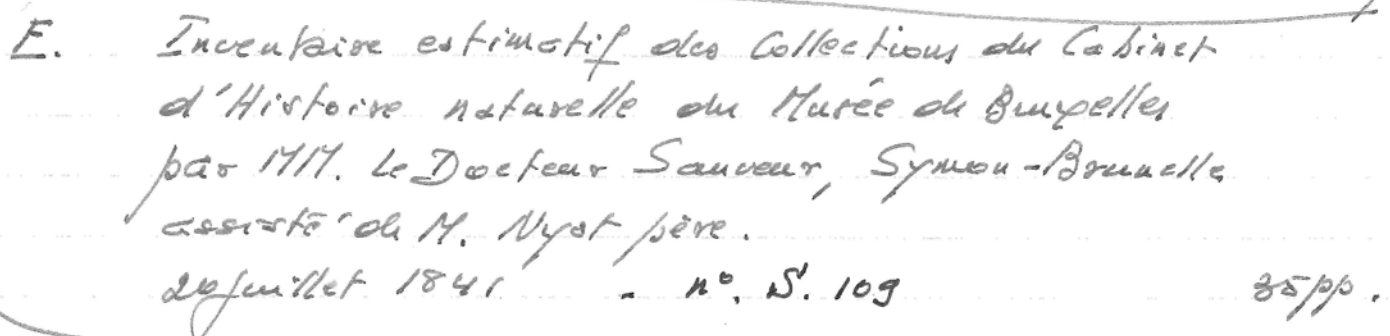 E. Inventaire estimatif des Collections du Cabinet
d'Histoire naturelle du Musée de Bruxelles
par MM. Le Docteur Sauveur, Symon-Brunelle
assisté de M. Nyst père.
20 juillet 1841 - n°. S. 109 35 pp.